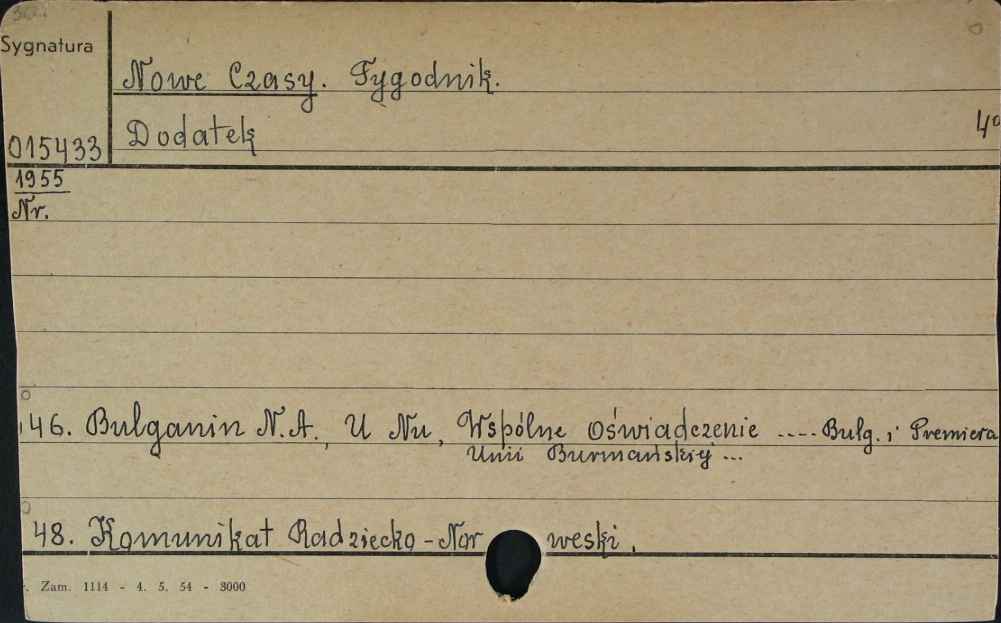 Sygnatura
Nowe Czasy. Tygodnik.
Dodatek 4º
015433
1955
Nr.
46. Bulganin N.A., U Nu, Wspólne Oświadczenie .... Bułg. i Premiera
Unii Burmańskiej ...
48. Komunikat Radziecko-Norweski.
Zam. 1114 - 4. 5. 54 - 3000